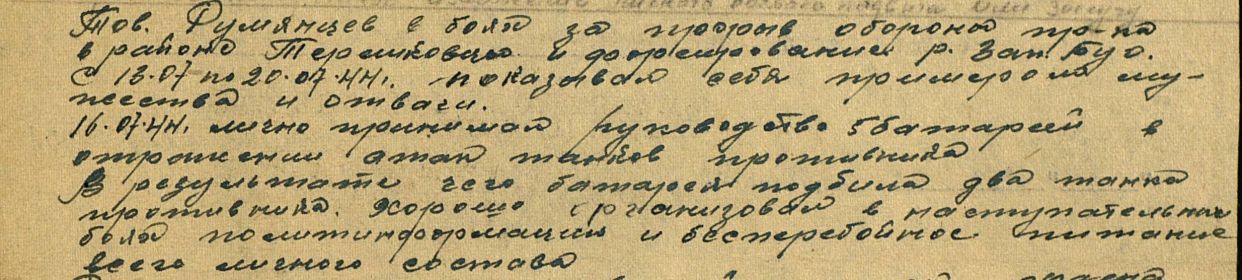 Тов. Румянцев в боях за прорыв обороны пр-ка
в районе и форсировании р. Зап. Буг.
С 13.07 по 20.07.44г. показывал себя примером му-
жества и отваги.
16.07.44г. лично принимал руководство 5 батареей в
отражении атак танков противника
В результате чего батарея подбила два танка
противника. Хорошо организовал в наступательных
боях политинформации и бесперебойное питание
всего личного состава